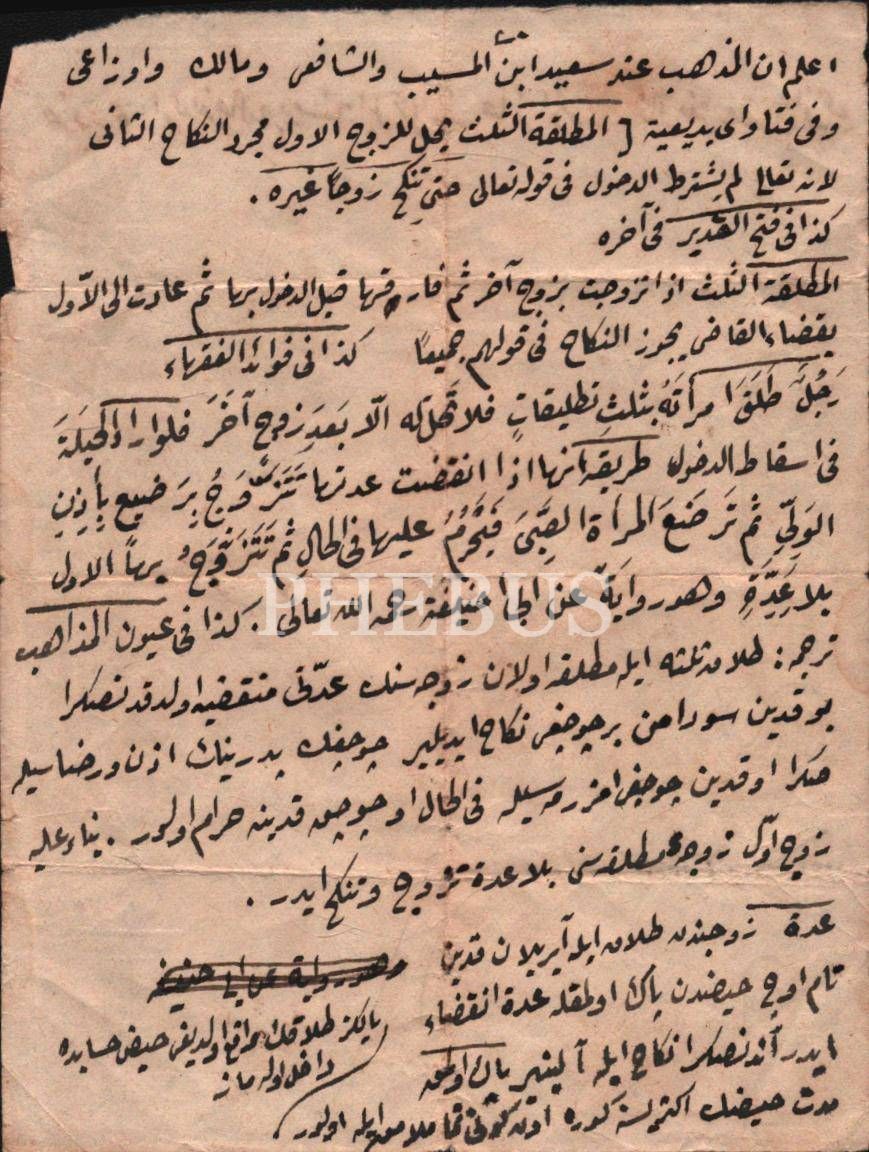 اعلم ان المذهب عند سعيد ابن المسيب والشافعى ومالك واوزاعى
وفى فتاواى بديعية المطلقة الثلث يحل للزوج الاول مجرد النكاح الثانى
لانه تعالى لم يشترط الدخول فى قوله تعالى حتى تنكح زوجاً غيره .
كذا فى فتح القدير فى آخره
المطلقة الثلث اذا تزوجت بزوج آخر ثم فارقها قبل الدخول بها ثم عادت الى الاّول
بقضاء القاضى يجوز النكاح فى قولهم جميعاً كذا فى فوائد الفقهاء
رَجُلٌ طَلَقَ امرأتَهُ بثلثِ تطليقاتٍ فلا تحل له الّا بَعدَ زوجٍ آخَرَ فلو اراد الحيلَةَ
فى اسقاط الدخول طريقه انها اذا انقضت عدتها تَتَزَوَّجُ بِرَضيعٍ بِأِذِنِ
الوَلِّىِ ثم تَرضَعَ المرأة الصَّبَىَ فَيَحْرُمُ عليها فى الحال ثم تَتَزَوَّجُ بهاً الاول
بلا عِدَّةٍ وهو روايةٌ عن ابى حنيفة رحمه الله تعالى . كذا فى عيون المذاهب
PHEBUS
ترجمه : طلاق ثلثه ايله مطلقه اولان زوجه سنك عدّتى منقضيه اولدقدنصكرا
بو قدين سوداَمن بر چوجغى نكاح ايديلير چوجغك پدرينك اذن ورضاسيله
صكرا او قدين چوجغى امزرمه سيله فى الحال او چوجق قدينه حرام اولور . بناء عليه
زوج اوّل زوجهء مطلقه سنى بلا عدة تزوج وتنكح ايدر .
عدة زوجندن طلاق ايله آيريلان قدين
وهو رواية عن ابى حنيفه
تام اوچ حيضدن پاك اولمقله عدة انقضاء
يالكز طلاقك واقع اولديغى حيض حسابده
داخل اوله ماز
ايدر آندنصكرا نكاح ايله آلينير پاك اولمق
مدت حيضك اكثريسنه كوره اون كونى تماملامق ايله اولور